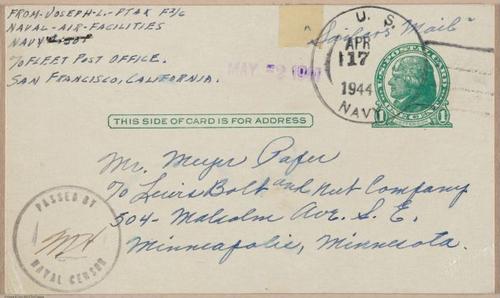 FROM-JOSEPH-L.-PTAK F3/c
NAVAL-AIR-FACILITIES
NAVY
℅ FLEET POST OFFICE.
SAN FRANCISCO, CALIFORNIA.
"Sailors Mail"
U. S.
APR
17
1944
NAVY
MAY 2 1944
U.S. POSTAL CARD
1
THIS SIDE OF CARD IS FOR ADDRESS
Mr. Meyer Pafer
℅ Lewis Bolt and Nut Company
504- Malcolm Ave. S. E.
Minneapolis, Minnesota.
PASSED BY
NAVAL CENSOR